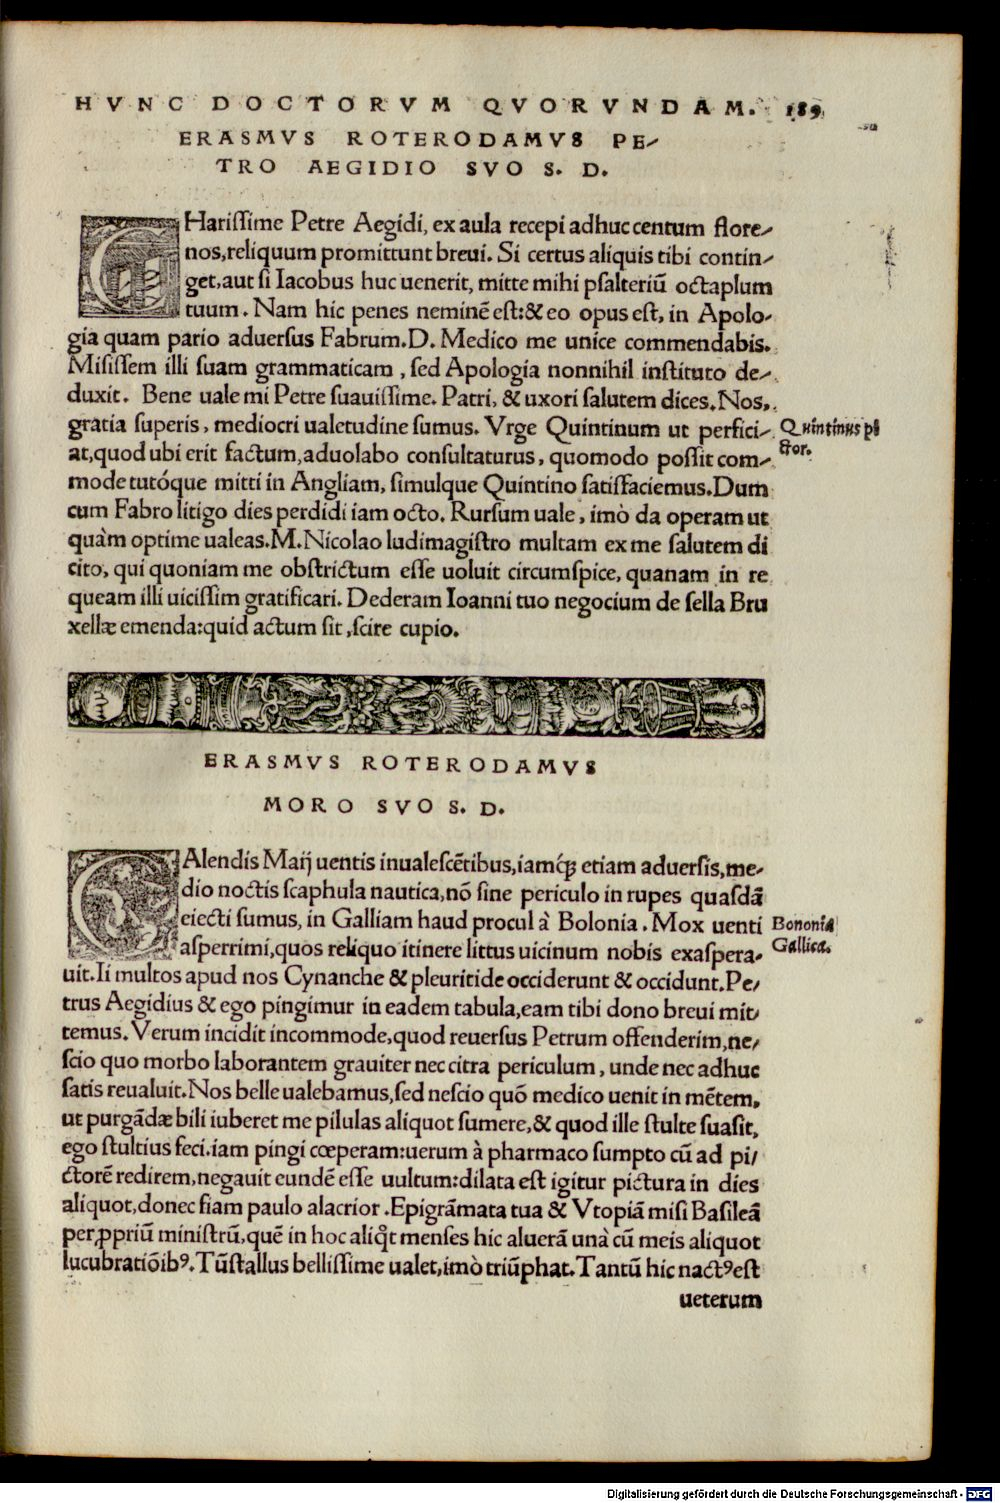 HVNC DOCTORVM QVORVNDAM. 189
ERASMVS ROTERODAMVS PE-
TRO AEGIDIO SVO S. D.
CHarissime Petre Aegidi, ex aula recepi adhuc centum flore-
nos, reliquum promittunt brevi. Si certus aliquis tibi contin-
get, aut si Iacobus huc uenerit, mitte mihi psalteriū octaplum
tuum. Nam hic penes neminē est: & eo opus est, in Apolo-
gia quam pario adversus Fabrum. D. Medico me unice commendabis.
Misissem illi suam grammaticam, sed Apologia nonnihil instituto de-
duxit. Bene uale mi Petre suavissime. Patri, & uxori salutem dices. Nos,
gratia superis, mediocri ualetudine sumus. Vrge Quintinum ut perfici-
at, quod ubi erit factum, aduolabo consultaturus, quomodo possit com-
mode tutóque mitti in Angliam, simulque Quintino satisfaciemus. Dum
cum Fabro litigo dies perdidi iam octo. Rursum uale, imò da operam ut
quàm optime ualeas. M. Nicolao ludimagistro multam ex me salutem di
cito, qui quoniam me obstrictum esse uoluit circumspice, quanam in re
queam illi uicissim gratificari. Dederam Ioanni tuo negocium de sella Bru
xellæ emenda: quid actum sit, scire cupio.
Quintinus pi
ctor.
ERASMVS ROTERODAMVS
MORO SVO S. D.
CAlendis Maij uentis inualescētibus, iamq́ꝫ etiam adversis, me-
dio noctis scaphula nautica, nō sine periculo in rupes quasdā
eiecti sumus, in Galliam haud procul à Bolonia. Mox uenti
asperrimi, quos reliquo itinere littus uicinum nobis exaspera-
uit. Ii multos apud nos Cynanche & pleuritide occiderunt & occidunt. Pe-
trus Aegidius & ego pingimur in eadem tabula, eam tibi dono brevi mit-
temus. Verum incidit incommode, quod reuersus Petrum offenderim, ne-
scio quo morbo laborantem graviter nec citra periculum, unde nec adhuc
satis reualuit. Nos belle ualebamus, sed nescio quō medico uenit in mētem,
ut purgādæ bili iuberet me pilulas aliquot sumere, & quod ille stulte suasit,
ego stultius feci. iam pingi cœperam: uerum à pharmaco sumpto cū ad pi-
ctorē redirem, negauit eundē esse uultum: dilata est igitur pictura in dies
aliquot, donec fiam paulo alacrior. Epigrāmata tua & Vtopiā misi Basileā
per ꝓpriū ministrū, quē in hoc aliq̊t menses hic aluerā unà cū meis aliquot
lucubratiōibꝰ. Tūstallus bellissime ualet, imò triūphat. Tantū hic nactꝰ est
ueterum
Bononia
Gallica.
Digitalisierung gefördert durch die Deutsche Forschungsgemeinschaft - DFG